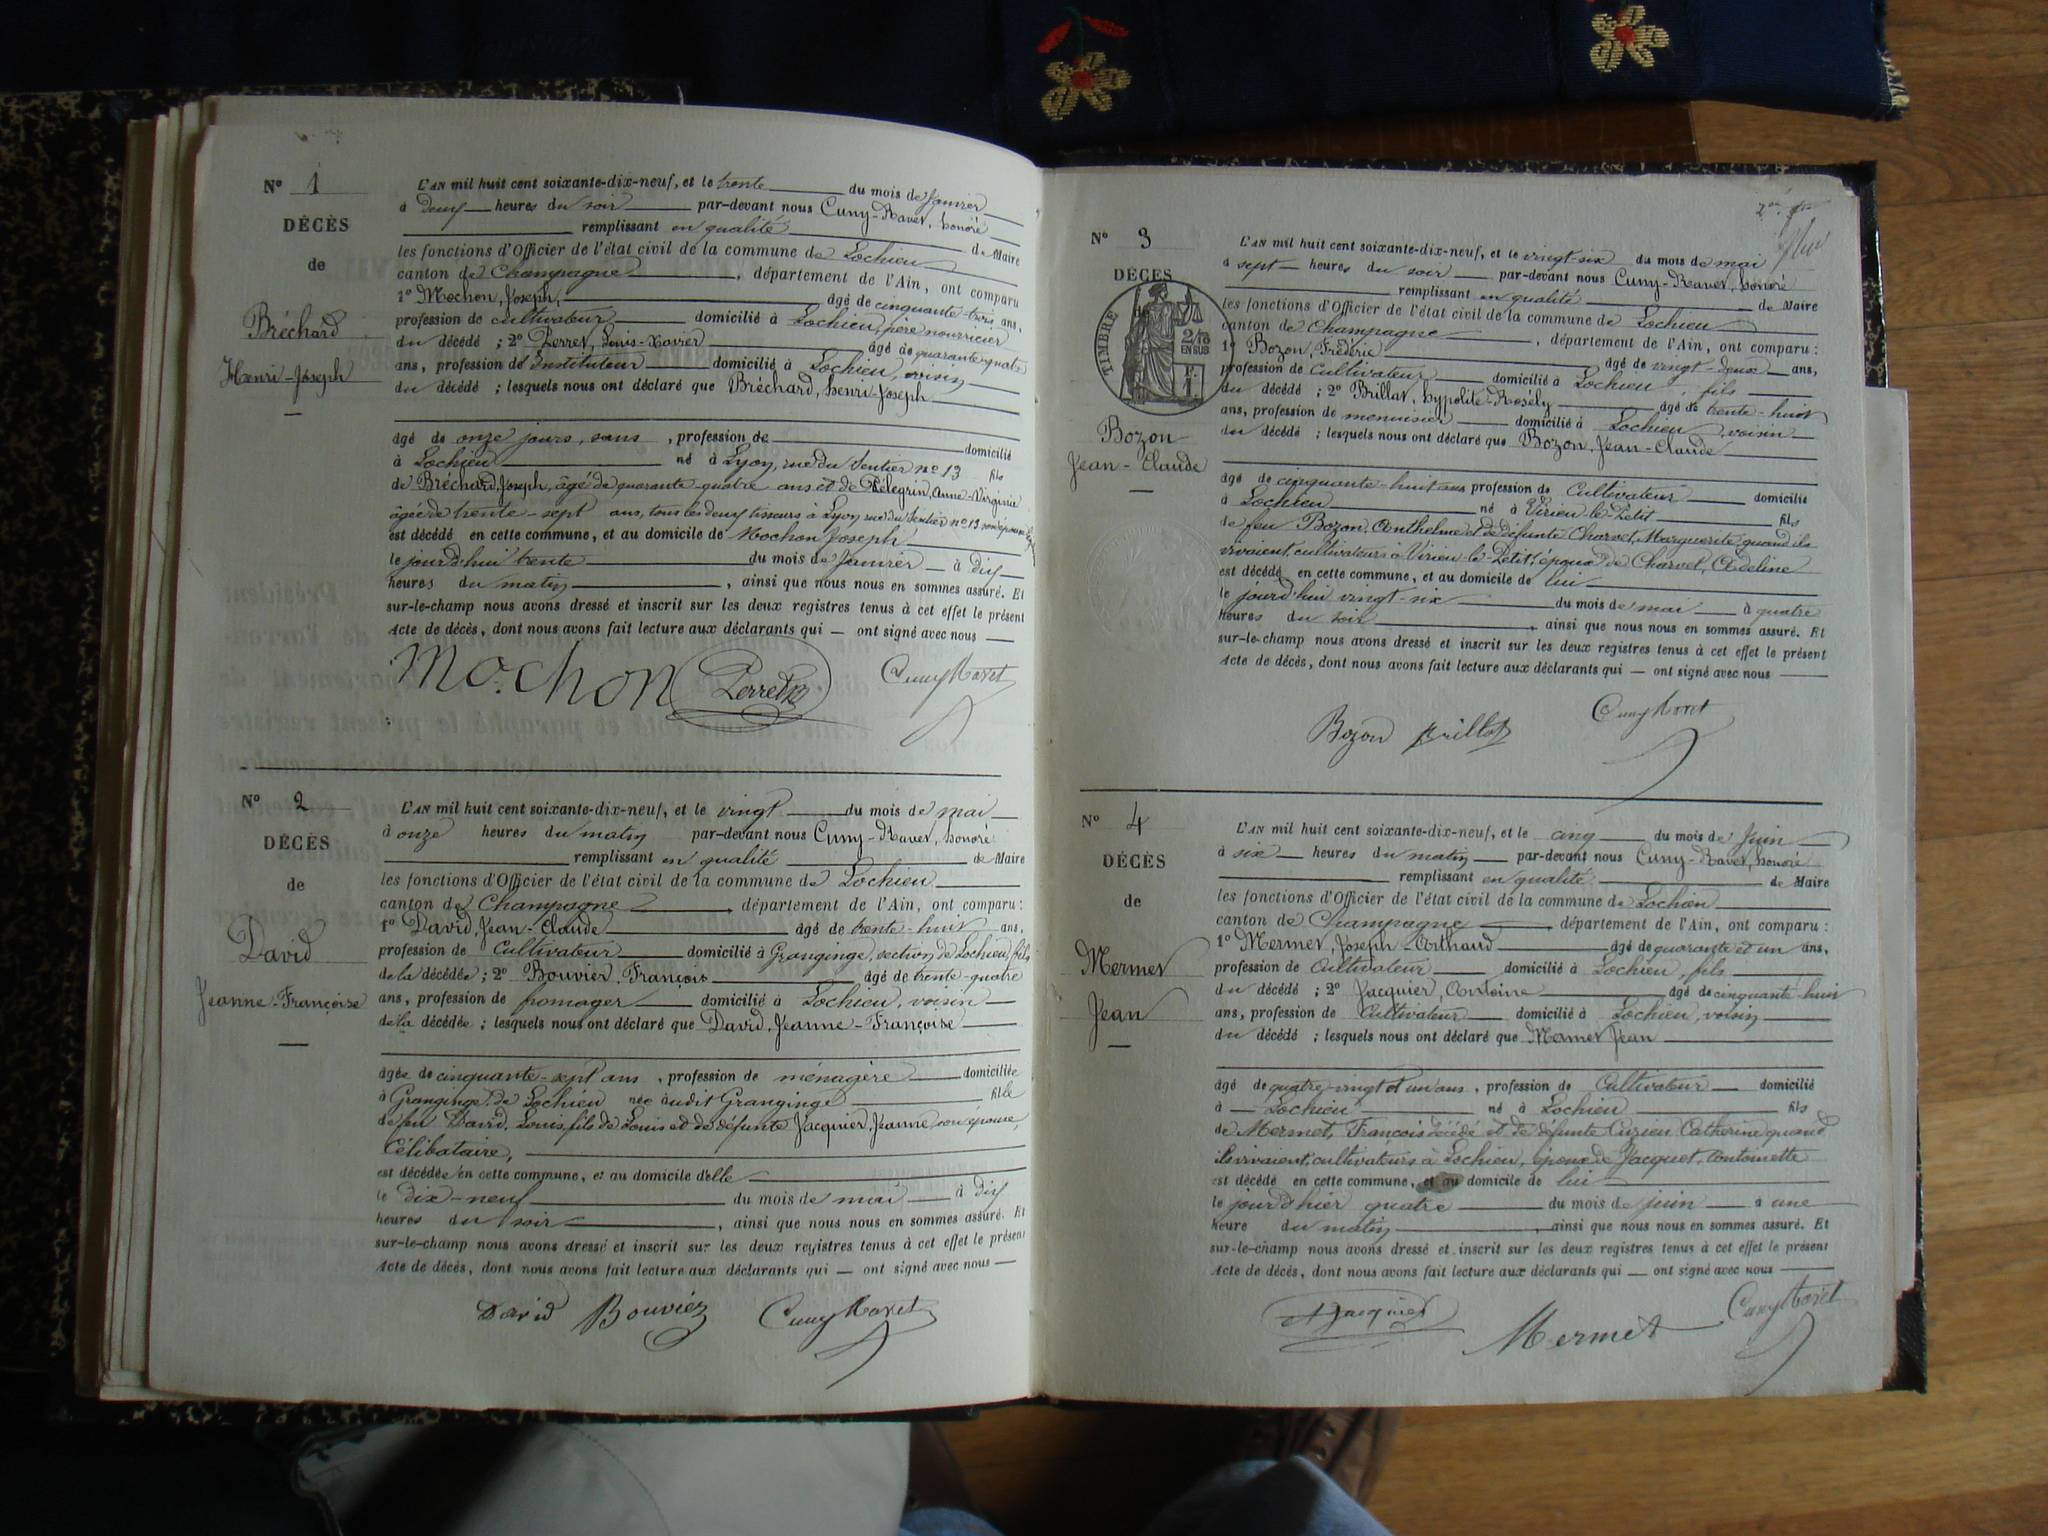 N° 1
DÉCÈS
de
Bréchard
Henri-Joseph
L'AN mil huit cent soixante-dix-neuf, et le trente du mois de Janvier
à deux heures du soir par-devant nous Cuny-Ravet, honoré
remplissant en qualité de Maire
les fonctions d'Officier de l'état civil de la commune de Lochieu
canton de Champagne, département de l'Ain, ont comparu
1° Mochon, Joseph, âgé de cinquante-trois ans,
profession de cultivateur domicilié à Lochieu, père nourricier
du décédé ; 2° Perret, Louis-Xavier âgé de quarante-quatre
ans, profession d'Instituteur domicilié à Lochieu, voisin
du décédé ; lesquels nous ont déclaré que Bréchard, henri-Joseph
âgé de onze jours, sans, profession de domicilié
à Lochieu né à Lyon, rue du Sentier n° 13 fils
de Bréchard, Joseph, âgé de quarante-quatre ans et de Pélegrin, Anne-Virginie
âgée de trente-sept ans, tous les deux tisseurs à Lyon rue du Sentier n° 13 son épouse
est décédé en cette commune, et au domicile de Mochon Joseph
le jourd'hui trente du mois de Janvier à dix
heures du matin, ainsi que nous nous en sommes assuré. Et
sur-le-champ nous avons dressé et inscrit sur les deux registres tenus à cet effet le présent
Acte de décès, dont nous avons fait lecture aux déclarants qui — ont signé avec nous —
Mochon Perret Cuny Ravet
N° 2
DÉCÈS
de
David
Jeanne-Françoise
L'AN mil huit cent soixante-dix-neuf, et le vingt du mois de mai
à onze heures du matin par-devant nous Cuny-Ravet, honoré
remplissant en qualité de Maire
les fonctions d'Officier de l'état civil de la commune de Lochieu
canton de Champagne, département de l'Ain, ont comparu :
1° David, Jean-Claude âgé de trente-huit ans,
profession de Cultivateur domicilié à Granginge, section de Lochieu, fils
de la décédée ; 2° Bouvier, François âgé de trente-quatre
ans, profession de fromager domicilié à Lochieu, voisin
de la décédée ; lesquels nous ont déclaré que David, Jeanne-Françoise
âgée de cinquante-sept ans, profession de ménagère domiciliée
à Granginge de Lochieu née audit Granginge fille
de feu David, Louis, fils de Louis et de défunte Jacquier, Jeanne son épouse,
Célibataire,
est décédée en cette commune, et au domicile d'elle
le dix-neuf du mois de mai à dix
heures du soir, ainsi que nous nous en sommes assuré. Et
sur-le-champ nous avons dressé et inscrit sur les deux registres tenus à cet effet le présent
Acte de décès, dont nous avons fait lecture aux déclarants qui — ont signé avec nous —
David Bouvier Cuny Ravet
N° 3
DÉCÈS
TIMBRE
2/10
EN SUS
Bozon
Jean-Claude
L'AN mil huit cent soixante-dix-neuf, et le vingt-six du mois de mai
à sept heures du soir par-devant nous Cuny-Ravet, honoré
remplissant en qualité de Maire
les fonctions d'Officier de l'état civil de la commune de Lochieu
canton de Champagne, département de l'Ain, ont comparu :
1° Bozon, Fréderic âgé de vingt-deux ans,
profession de Cultivateur domicilié à Lochieu, fils
du décédé ; 2° Brillat, hypolite-Rosély âgé de trente-huit
ans, profession de menuisier domicilié à Lochieu, voisin
du décédé ; lesquels nous ont déclaré que Bozon, Jean-Claude
âgé de cinquante-huit ans profession de Cultivateur domicilié
à Lochieu né à Virieu-le-Petit fils
de feu Bozon, Anthelme et de défunte Charvet, Marguerite quand ils
vivaient cultivateurs à Virieu-le-Petit, époux de Charvet, Adeline
est décédé en cette commune, et au domicile de lui
le jourd'hui vingt-six du mois de mai à quatre
heures du soir, ainsi que nous nous en sommes assuré. Et
sur-le-champ nous avons dressé et inscrit sur les deux registres tenus à cet effet le présent
Acte de décès, dont nous avons fait lecture aux déclarants qui — ont signé avec nous —
Bozon Brillat Cuny Ravet
N° 4
DÉCÈS
de
Mermet
Jean
L'AN mil huit cent soixante-dix-neuf, et le cinq du mois de Juin
à six heures du matin par-devant nous Cuny-Ravet, honoré
remplissant en qualité de Maire
les fonctions d'Officier de l'état civil de la commune de Lochieu
canton de Champagne département de l'Ain, ont comparu :
1° Mermet, Joseph-Arthaud âgé de quarante et un ans,
profession de Cultivateur domicilié à Lochieu, fils
du décédé ; 2° Jacquier, Antoine âgé de cinquante-huit
ans, profession de Cultivateur domicilié à Lochieu, voisin
du décédé ; lesquels nous ont déclaré que Mermet Jean
âgé de quatre-vingt et un ans, profession de Cultivateur domicilié
à Lochieu né à Lochieu fils
de Mermet, François décédé et de défunte Cuzieu Catherine quand
ils vivaient, cultivateurs à Lochieu, époux de Jacquet, Antoinette
est décédé en cette commune, et au domicile de lui
le jourd'hier quatre du mois de juin à une
heure du matin, ainsi que nous nous en sommes assuré. Et
sur-le-champ nous avons dressé et inscrit sur les deux registres tenus à cet effet le présent
Acte de décès, dont nous avons fait lecture aux déclarants qui — ont signé avec nous —
Jacquier Mermet Cuny Ravet